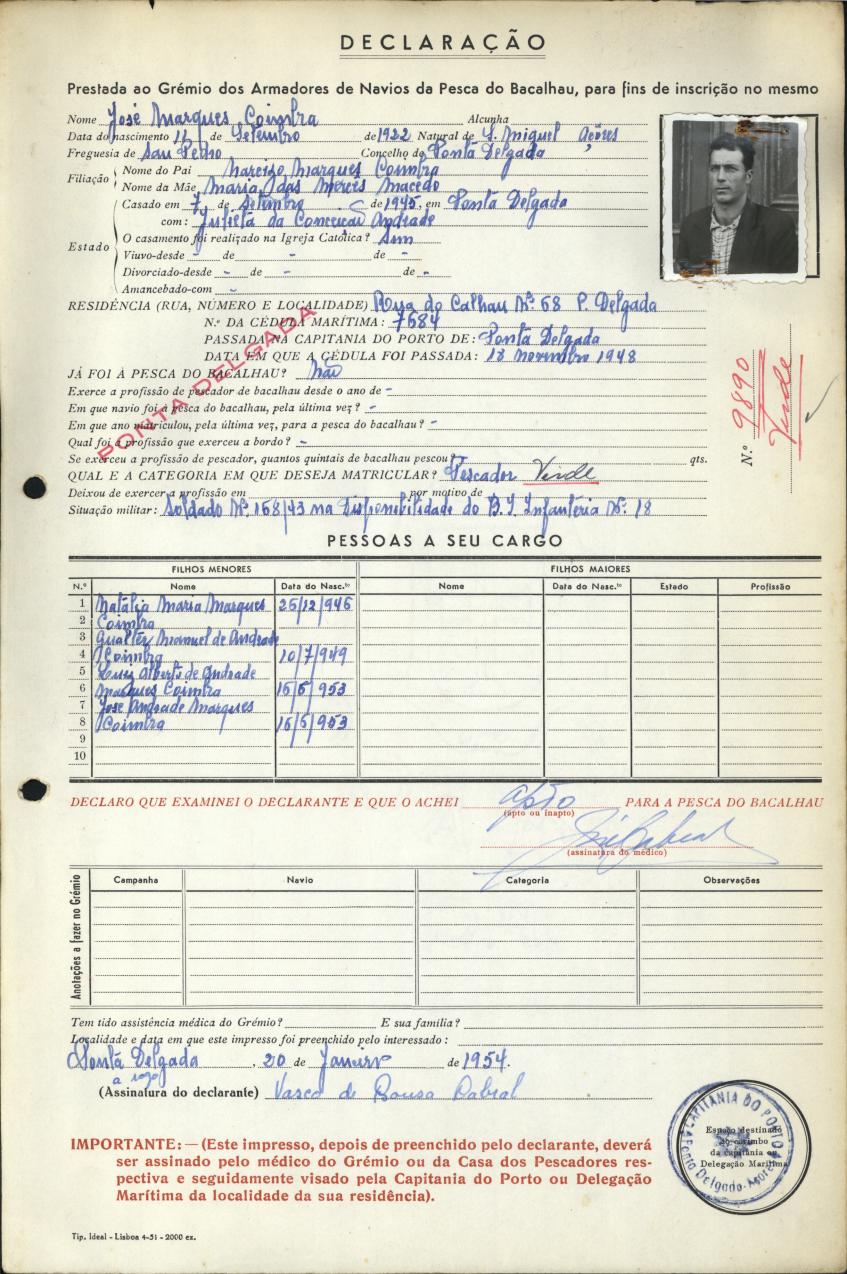 DECLARAÇÃO
Prestada ao Grémio dos Armadores de Navios da Pesca do Bacalhau, para fins de inscrição no mesmo
Nome José Marques Coimbra Alcunha
Data do nascimento 11 de Setembro de 1922 Natural de S. Miguel Açôres
Freguesia de San Pedro Concelho de Ponta Delgada
Filiação
Nome do Pai Narcizo Marques Coimbra
Nome da Mãe Maria das Mercês Macedo
Estado
Casado em 7 de Setembro de 1945, em Ponta Delgada
com: Justiela da Conceição Andrade
O casamento foi realizado na Igreja Católica? Sim
Viuvo-desde - de - de -
Divorciado-desde - de - de -
Amancebado-com -
RESIDÊNCIA (RUA, NÚMERO E LOCALIDADE) Rua do Calhau Nº 68 P. Delgada
N.º DA CÉDULA MARÍTIMA: 7684
PASSADA NA CAPITANIA DO PORTO DE: Ponta Delgada
DATA EM QUE A CÉDULA FOI PASSADA: 18 novembro 1948
JÁ FOI À PESCA DO BACALHAU? Não
PONTA DELGADA
Exerce a profissão de pescador de bacalhau desde o ano de -
Em que navio foi à pesca do bacalhau, pela última vez? -
Em que ano matriculou, pela última vez, para a pesca do bacalhau? -
Qual foi a profissão que exerceu a bordo? -
Se exerceu a profissão de pescador, quantos quintais de bacalhau pescou? - qts.
QUAL E A CATEGORIA EM QUE DESEJA MATRICULAR? Pescador Verde
Deixou de exercer a profissão em por motivo de
Situação militar: Soldado Nº 168/43 na Disponibilidade do B. I. Infantéria Nº 18
N.º 9890
Verde
PESSOAS A SEU CARGO
FILHOS MENORES FILHOS MAIORES
N.º Nome Data do Nasc.to Nome Data do Nasc.to Estado Profissão
1 Natália Maria Marques 25/12/946
2 Coimbra
3 Gualter Manuel de Andrade
4 Coimbra 10/7/949
5 Luiz Alberto de Andrade
6 Marques Coimbra 15/5/953
7 José Andrade Marques
8 Coimbra 15/5/953
9
10
DECLARO QUE EXAMINEI O DECLARANTE E QUE O ACHEI apto PARA A PESCA DO BACALHAU
(apto ou inapto)
(assinatura do médico)
Anotações a fazer no Grémio
Campanha Navio Categoria Observações
Tem tido assistência médica do Grémio? E sua família?
Localidade e data em que este impresso foi preenchido pelo interessado:
Ponta Delgada, 20 de Janeiro de 1954.
a rogo
(Assinatura do declarante) Vasco de Sousa Cabral
CAPITANIA DO PORTO
Ponta Delgada-Açores
Espaço destinado
ao carimbo
da capitania ou
Delegação Marítima
IMPORTANTE: — (Este impresso, depois de preenchido pelo declarante, deverá
ser assinado pelo médico do Grémio ou da Casa dos Pescadores res-
pectiva e seguidamente visado pela Capitania do Porto ou Delegação
Marítima da localidade da sua residência).
Tip. Ideal - Lisboa 4-51 - 2000 ex.